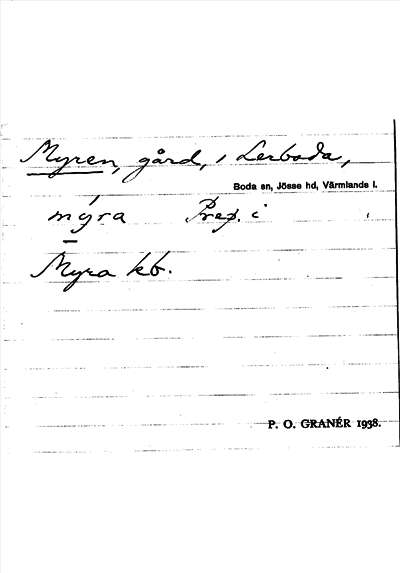 Myren, gård, i Lerboda,
Boda sn, Jösse hd, Värmlands l.
mýra Prep. i
Myra kb.
P. O. GRANÉR 1938.